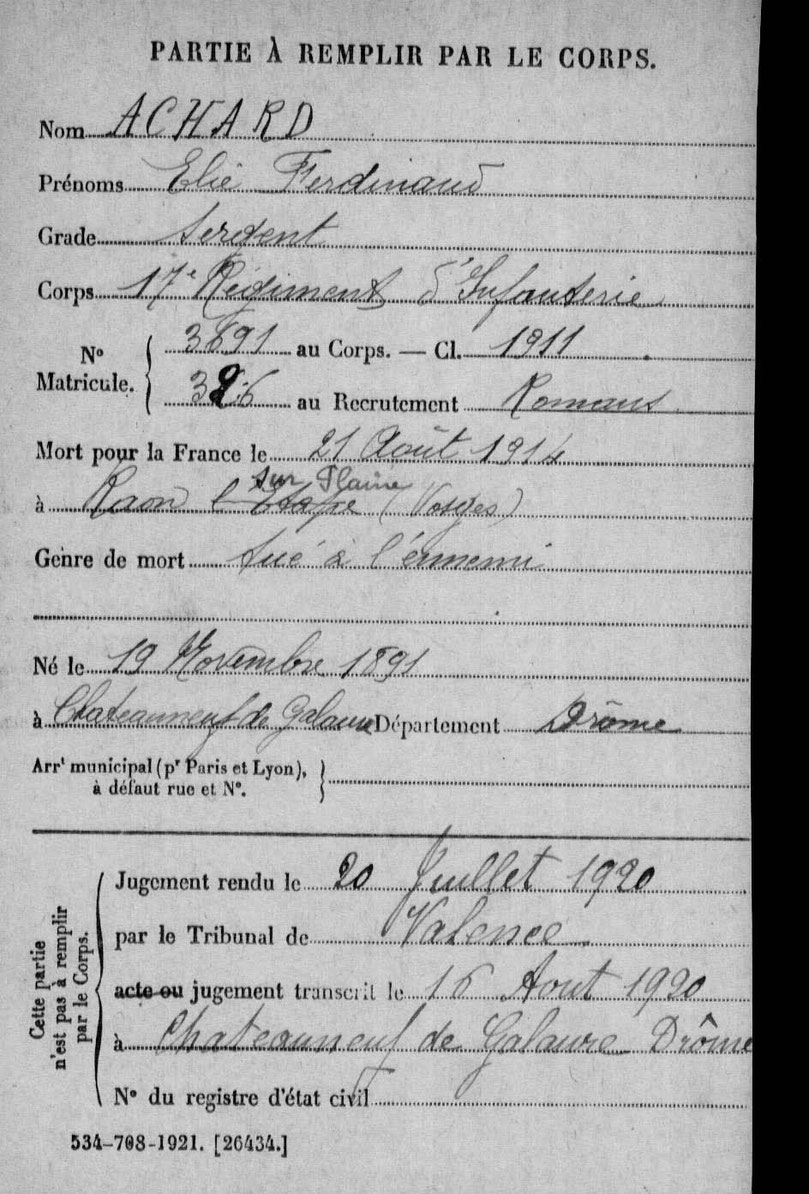 PARTIE À REMPLIR PAR LE CORPS.
Nom ACHARD
Prénoms Elie Ferdinand
Grade Sergent
Corps 17e Régiment d'Infanterie
No Matricule. 3691 au Corps. — Cl. 1911
326 au Recrutement Romans
Mort pour la France le 21 Août 1914
sur Plaine
à Raon l'Etape (Vosges)
Genre de mort tué à l'ennemi
Né le 19 Novembre 1891
à Chateauneuf de Galaure Département Drôme
Arrt municipal (pr Paris et Lyon),
à défaut rue et No.
Cette partie
n'est pas à remplir
par le Corps.
Jugement rendu le 20 Juillet 1920
par le Tribunal de Valence
acte ou jugement transcrit le 16 Aout 1920
à Chateauneuf de Galaure Drôme
No du registre d'état civil
534-708-1921. [26434.]